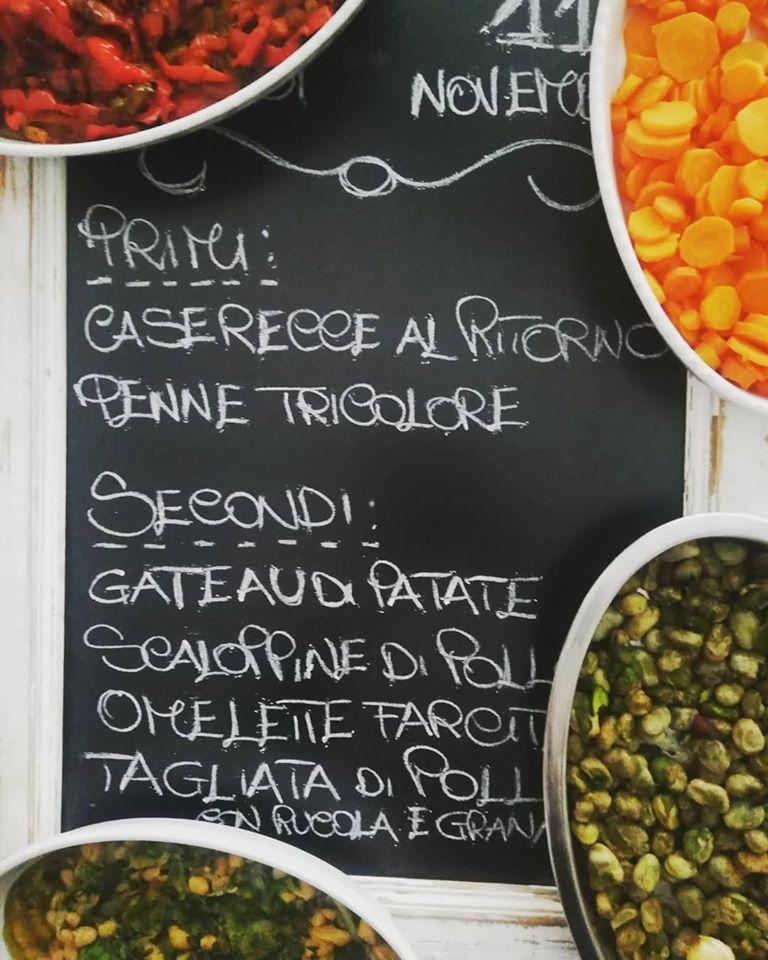 11
NOVEM
PRIMI:
CASERECCE AL RITORNO
PENNE TRICOLORE
SECONDI:
GATEAU DI PATATE
SCALOPPINE DI POLL
OMELETTE FARCIT
TAGLIATA DI POLL
CON RUCOLA E GRANA